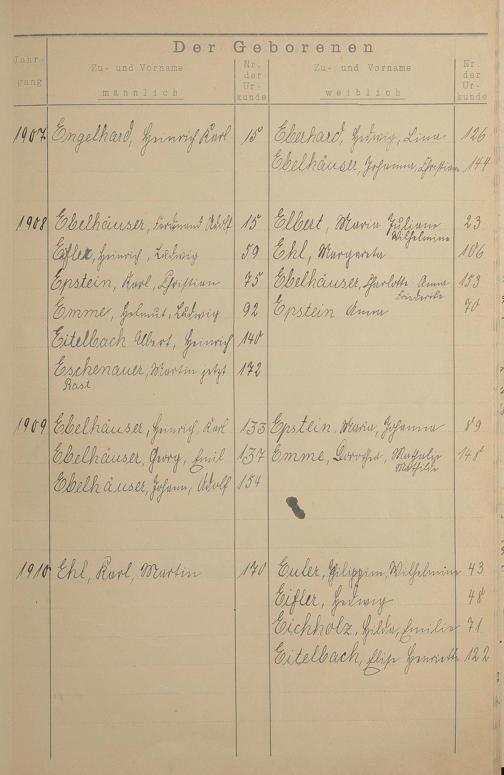 Der Geborenen
Jahr-
gang
Zu- und Vorname
männlich
Nr.
der
Ur-
kunde
Zu- und Vorname
weiblich
Nr.
der
Ur-
kunde
1907 Engelhard, Heinrich Karl 15 Eberhard, Hedwig, Lina 126
Ebelhäuser, Johanna, Christian 144
1908 Ebelhäuser, Ferdinand Adolf 15 Elbert, Maria Juliane 23
Wilhelmine
Heinrich, Ludwig 59 Ehl, Margareta 106
Epstein, Karl, Christian 75 Ebelhäuser, Charlotte Anna 153
Friederike
Emme, Helmut, Ludwig 92 Epstein Anna 70
Eitelbach Albert, Heinrich 140
Eschenauer, Martin jetzt 172
Rast
1909 Ebelhäuser, Heinrich, Karl 133 Epstein, Maria, Johanna 89
Ebelhäuser, Georg, Emil 137 Emme, Dorothea, 148
Mathilde
Ebelhäuser, Johann, Adolf 154
1910 Ehl, Karl, Martin 170 Euler, Philippine, Wilhelmine 43
Eifler, Hedwig 48
Eichholz, Hilda, Emilie 71
Eitelbach, Elise Henriette 122